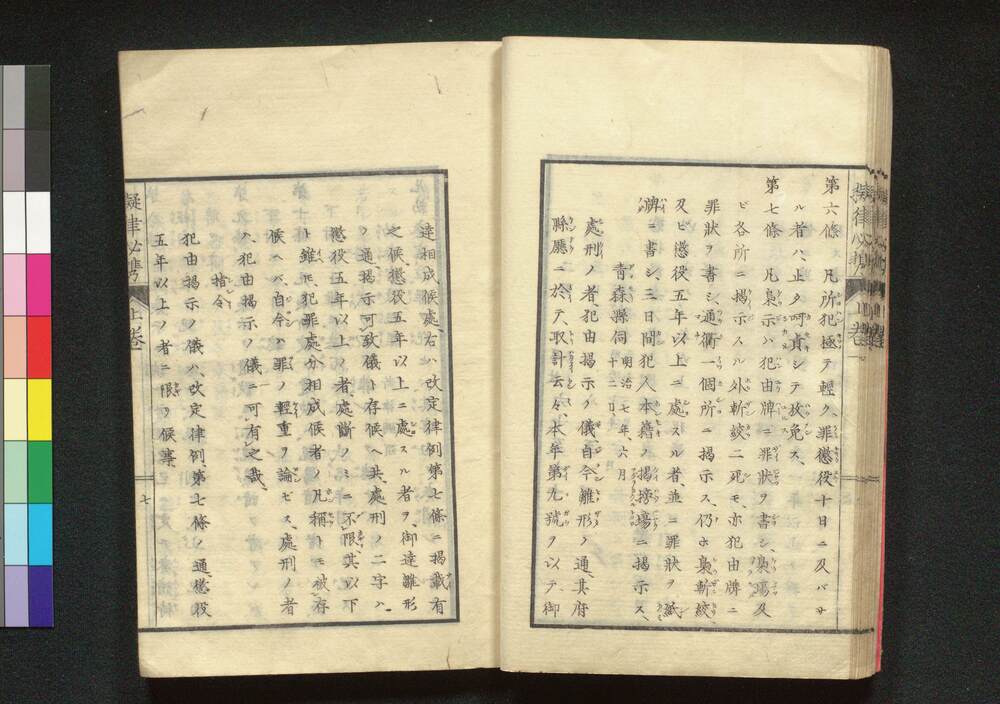 第六條 凡所犯極テ輕ク、罪懲役十日ニ及バサ
ル者ハ、止タ呵責シテ放免ス、
第七條 凡梟示ハ犯由牌ニ罪狀ヲ書シ、梟塲及
ビ各所ニ揭示スル外斬絞二死モ、亦犯由牌ニ
罪狀ヲ書シ、通衢一個所ニ揭示ス、仍ホ梟斬絞、
及ヒ懲役五年以上ニ處スル者、並ニ罪狀ヲ紙
牌ニ書シ、三日間犯人本籍ノ揭榜塲ニ揭示ス、
青森縣伺 明治七年、六月十二日、
處刑ノ者、犯由揭示ノ儀自今雛形ノ通、其府
縣廳ニ於テ、取計云々、本年第九號ヲ以テ、御
達相成候處、右ハ改定律例第七條ニ揭載有
之候懲役五年以上ニ處スル者ヲ、御達雛形
ノ通揭示可致儀ト存候ヘ共、處刑ノ二字ハ
懲役五年以上ノ者、處斷ノミニ不限、其以下
ト雖モ、犯罪處分相成候者ノ凡稱トモ被存
候ヘバ、自今ハ罪ノ輕重ヲ論ゼス、處刑ノ者
ハ、犯由揭示ノ儀ニ可有之哉、
指令
犯由揭示ノ儀ハ、改定律例、第七條ノ通、懲役
五年以上ノ者ニ限リ候事、
擬律必携 上卷 七